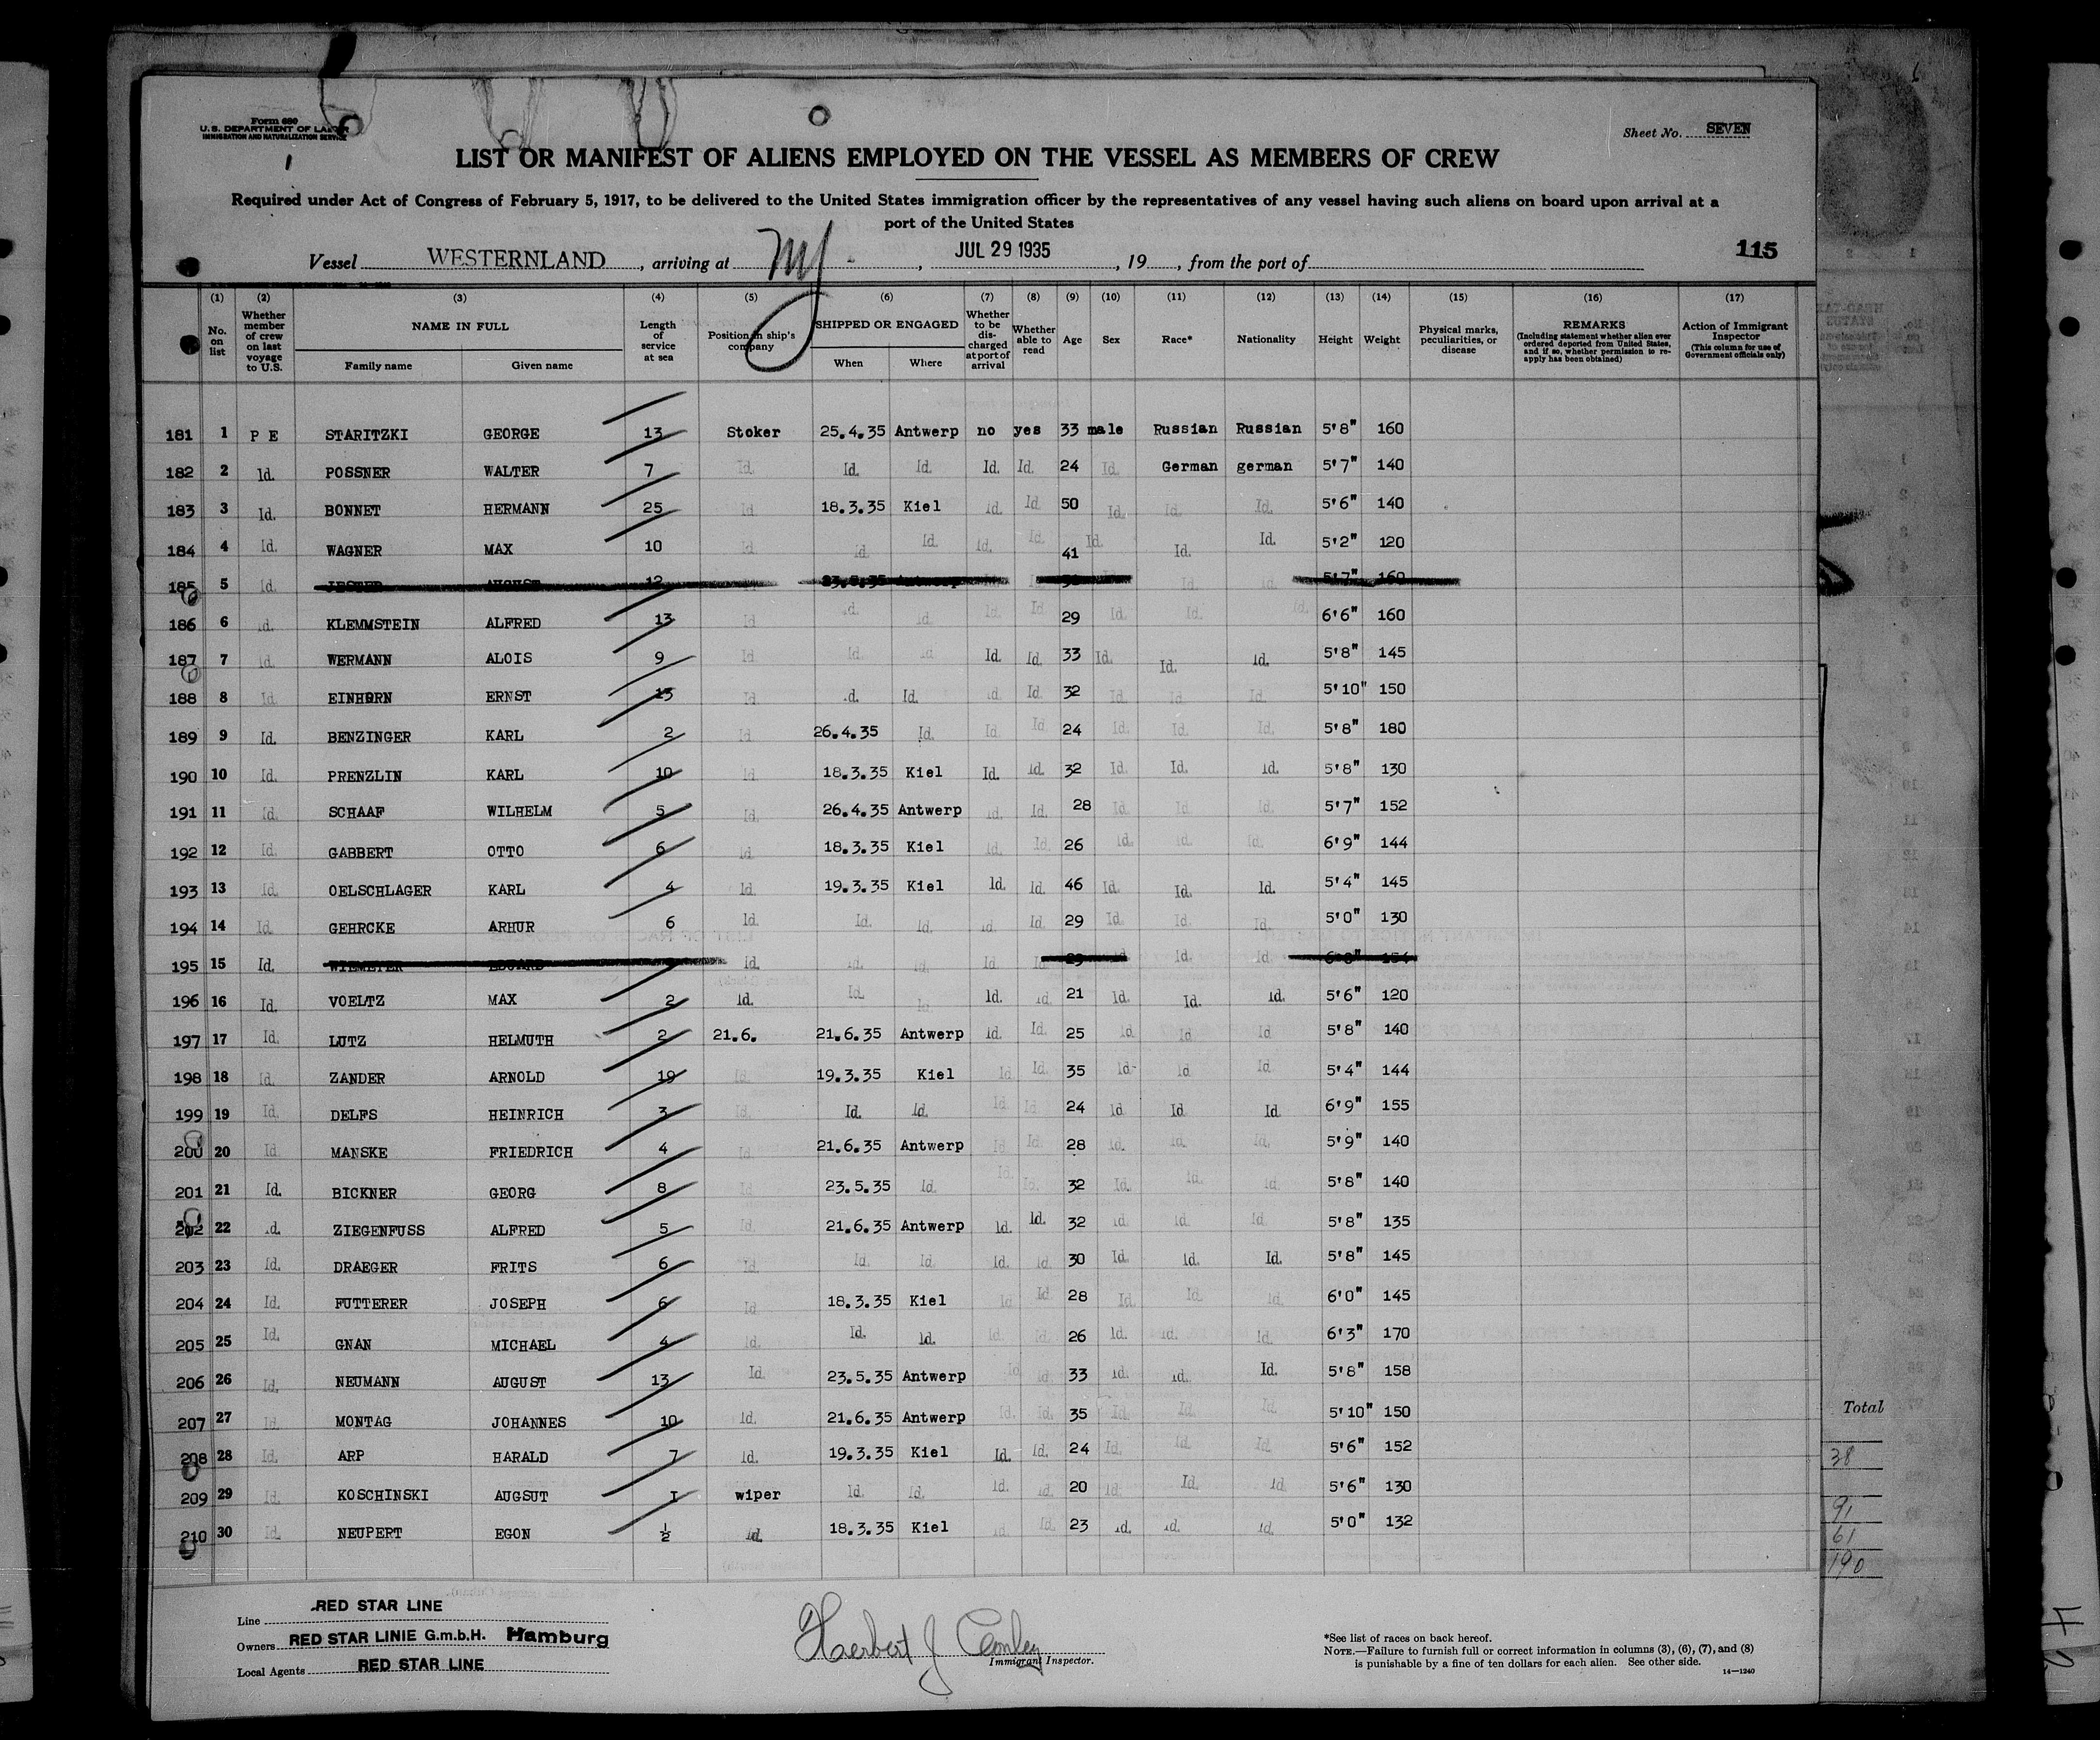 Form 680
U.S. DEPARTMENT OF LABOR
IMMIGRATION AND NATURALIZATION SERVICE
Sheet No. SEVEN
LIST OR MANIFEST OF ALIENS EMPLOYED ON THE VESSEL AS MEMBERS OF CREW
Required under Act of Congress of February 5, 1917, to be delivered to the United States immigration officer by the representatives of any vessel having such aliens on board upon arrival at a
port of the United States
Vessel WESTERNLAND, arriving at NY, JUL 29 1935, 19, from the port of
115
(1) (2) (3) (4) (5) (6) (7) (8) (9) (10) (11) (12) (13) (14) (15) (16) (17)
No. on list
Whether member of crew on last voyage to U.S.
NAME IN FULL
Family name Given name
Length of service at sea
Position in ship's company
SHIPPED OR ENGAGED
When Where
Whether to be discharged at port of arrival
Whether able to read
Age
Sex
Race*
Nationality
Height
Weight
Physical marks, peculiarities, or disease
REMARKS
(Including statement whether alien ever ordered deported from United States, and if so, whether permission to reapply has been obtained)
Action of Immigrant Inspector
(This column for use of Government officials only)
181 1 P E STARITZKI GEORGE 13 Stoker 25.4.35 Antwerp no yes 33 male Russian Russian 5'8" 160
182 2 Id. POSSNER WALTER 7 Id. Id. Id. Id. Id. 24 Id. German german 5'7" 140
183 3 Id. BONNET HERMANN 25 Id 18.3.35 Kiel Id. Id 50 Id. Id. Id. 5'6" 140
184 4 Id. WAGNER MAX 10 Id Id. Id Id. Id. 41 Id. Id. Id. 5'2" 120
185 5 Id. 12 Id. Id. 5'7" 160
186 6 Id. KLEMMSTEIN ALFRED 13 Id Id. Id. Id. Id 29 Id. Id. Id. 6'6" 160
187 7 Id. WERMANN ALOIS 9 Id Id. Id Id. Id. 33 Id. Id. Id. 5'8" 145
188 8 Id. EINHORN ERNST 13 Id Id. Id. Id. Id. 32 Id. Id. Id. 5'10" 150
189 9 Id. BENZINGER KARL 2 Id 26.4.35 Id. Id. Id 24 Id. Id. Id. 5'8" 180
190 10 Id. PRENZLIN KARL 10 Id 18.3.35 Kiel Id. Id. 32 Id. Id. Id. 5'8" 130
191 11 Id. SCHAAF WILHELM 5 Id. 26.4.35 Antwerp Id. Id. 28 Id. Id Id. 5'7" 152
192 12 Id. GABBERT OTTO 6 Id. 18.3.35 Kiel Id. Id. 26 Id. Id. Id. 6'9" 144
193 13 Id. OELSCHLAGER KARL 4 Id. 19.3.35 Kiel Id. Id. 46 Id. Id. Id. 5'4" 145
194 14 Id. GEHRCKE ARHUR 6 Id. Id. Id. Id. Id. 29 Id. Id Id. 5'0" 130
195 15 Id. WIEMEYER EDUARD Id. Id. Id. Id. Id 29 Id. Id. Id. 6'8" 154
196 16 Id. VOELTZ MAX 2 Id. Id. Id. Id. Id. 21 Id. Id. Id. 5'6" 120
197 17 Id. LUTZ HELMUTH 2 21.6. 21.6.35 Antwerp Id. Id. 25 Id Id Id 5'8" 140
198 18 Id. ZANDER ARNOLD 19 Id. 19.3.35 Kiel Id Id. 35 Id. Id Id. 5'4" 144
199 19 Id. DELFS HEINRICH 3 Id. Id. Id. Id. Id 24 Id Id. Id. 6'9" 155
200 20 Id. MANSKE FRIEDRICH 4 Id. 21.6.35 Antwerp Id Id. 28 Id. Id. Id. 5'9" 140
201 21 Id. BICKNER GEORG 8 Id 23.5.35 Id. Id. Id. 32 Id. Id. Id. 5'8" 140
202 22 Id. ZIEGENFUSS ALFRED 5 Id. 21.6.35 Antwerp Id. Id. 32 Id Id Id. 5'8" 135
203 23 Id. DRAEGER FRITS 6 Id. Id. Id. Id. Id. 30 Id. Id. Id. 5'8" 145
204 24 Id. FUTTERER JOSEPH 6 Id 18.3.35 Kiel Id Id 28 Id. Id. Id. 6'0" 145
205 25 Id. GNAN MICHAEL 4 Id. Id. Id. Id. Id. 26 Id. Id. Id. 6'3" 170
206 26 Id. NEUMANN AUGUST 13 Id. 23.5.35 Antwerp Id Id. 33 Id. Id. Id. 5'8" 158
207 27 Id. MONTAG JOHANNES 10 Id. 21.6.35 Antwerp Id. Id. 35 Id. Id. Id. 5'10" 150
208 28 Id. ARP HARALD 7 Id. 19.3.35 Kiel Id. Id. 24 Id. Id. Id. 5'6" 152
209 29 Id. KOSCHINSKI AUGSUT I wiper Id. Id. Id. Id. 20 Id. Id. Id. 5'6" 130
210 30 Id. NEUPERT EGON ½ Id. 18.3.35 Kiel Id. Id. 23 Id. Id. Id. 5'0" 132
Total
38
91
61
190
Line RED STAR LINE
Owners RED STAR LINIE G.m.b.H. Hamburg
Local Agents RED STAR LINE
Herbert J Conley
Immigrant Inspector.
*See list of races on back hereof.
NOTE.—Failure to furnish full or correct information in columns (3), (6), (7), and (8)
is punishable by a fine of ten dollars for each alien. See other side.
14—1240